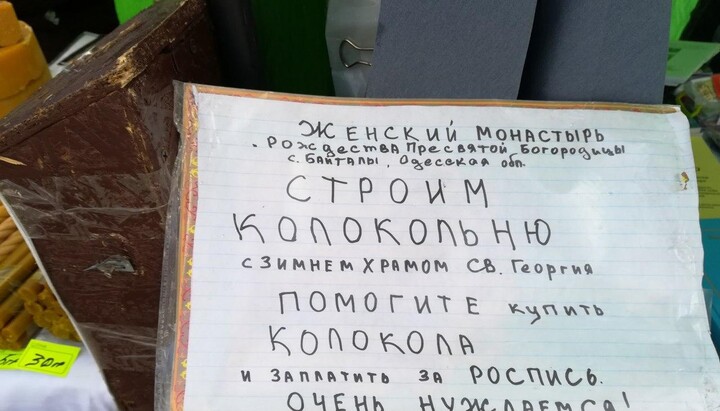 ЖЕНСКИЙ МОНАСТЫРЬ
. РОЖДЕСТВА ПРЕСВЯТОЙ БОГОРОДИЦЫ
с. БАЙТАЛЫ, ОДЕССКАЯ обл.
СТРОИМ
КОЛОКОЛЬНЮ
с ЗИМНЕМ ХРАМОМ СВ. ГЕОРГИЯ
ПОМОГИТЕ купить
КОЛОКОЛА
и ЗАПЛАТИТЬ ЗА РОСПИСЬ.
ОЧЕНЬ НУЖДАЕМСЯ!
30гр